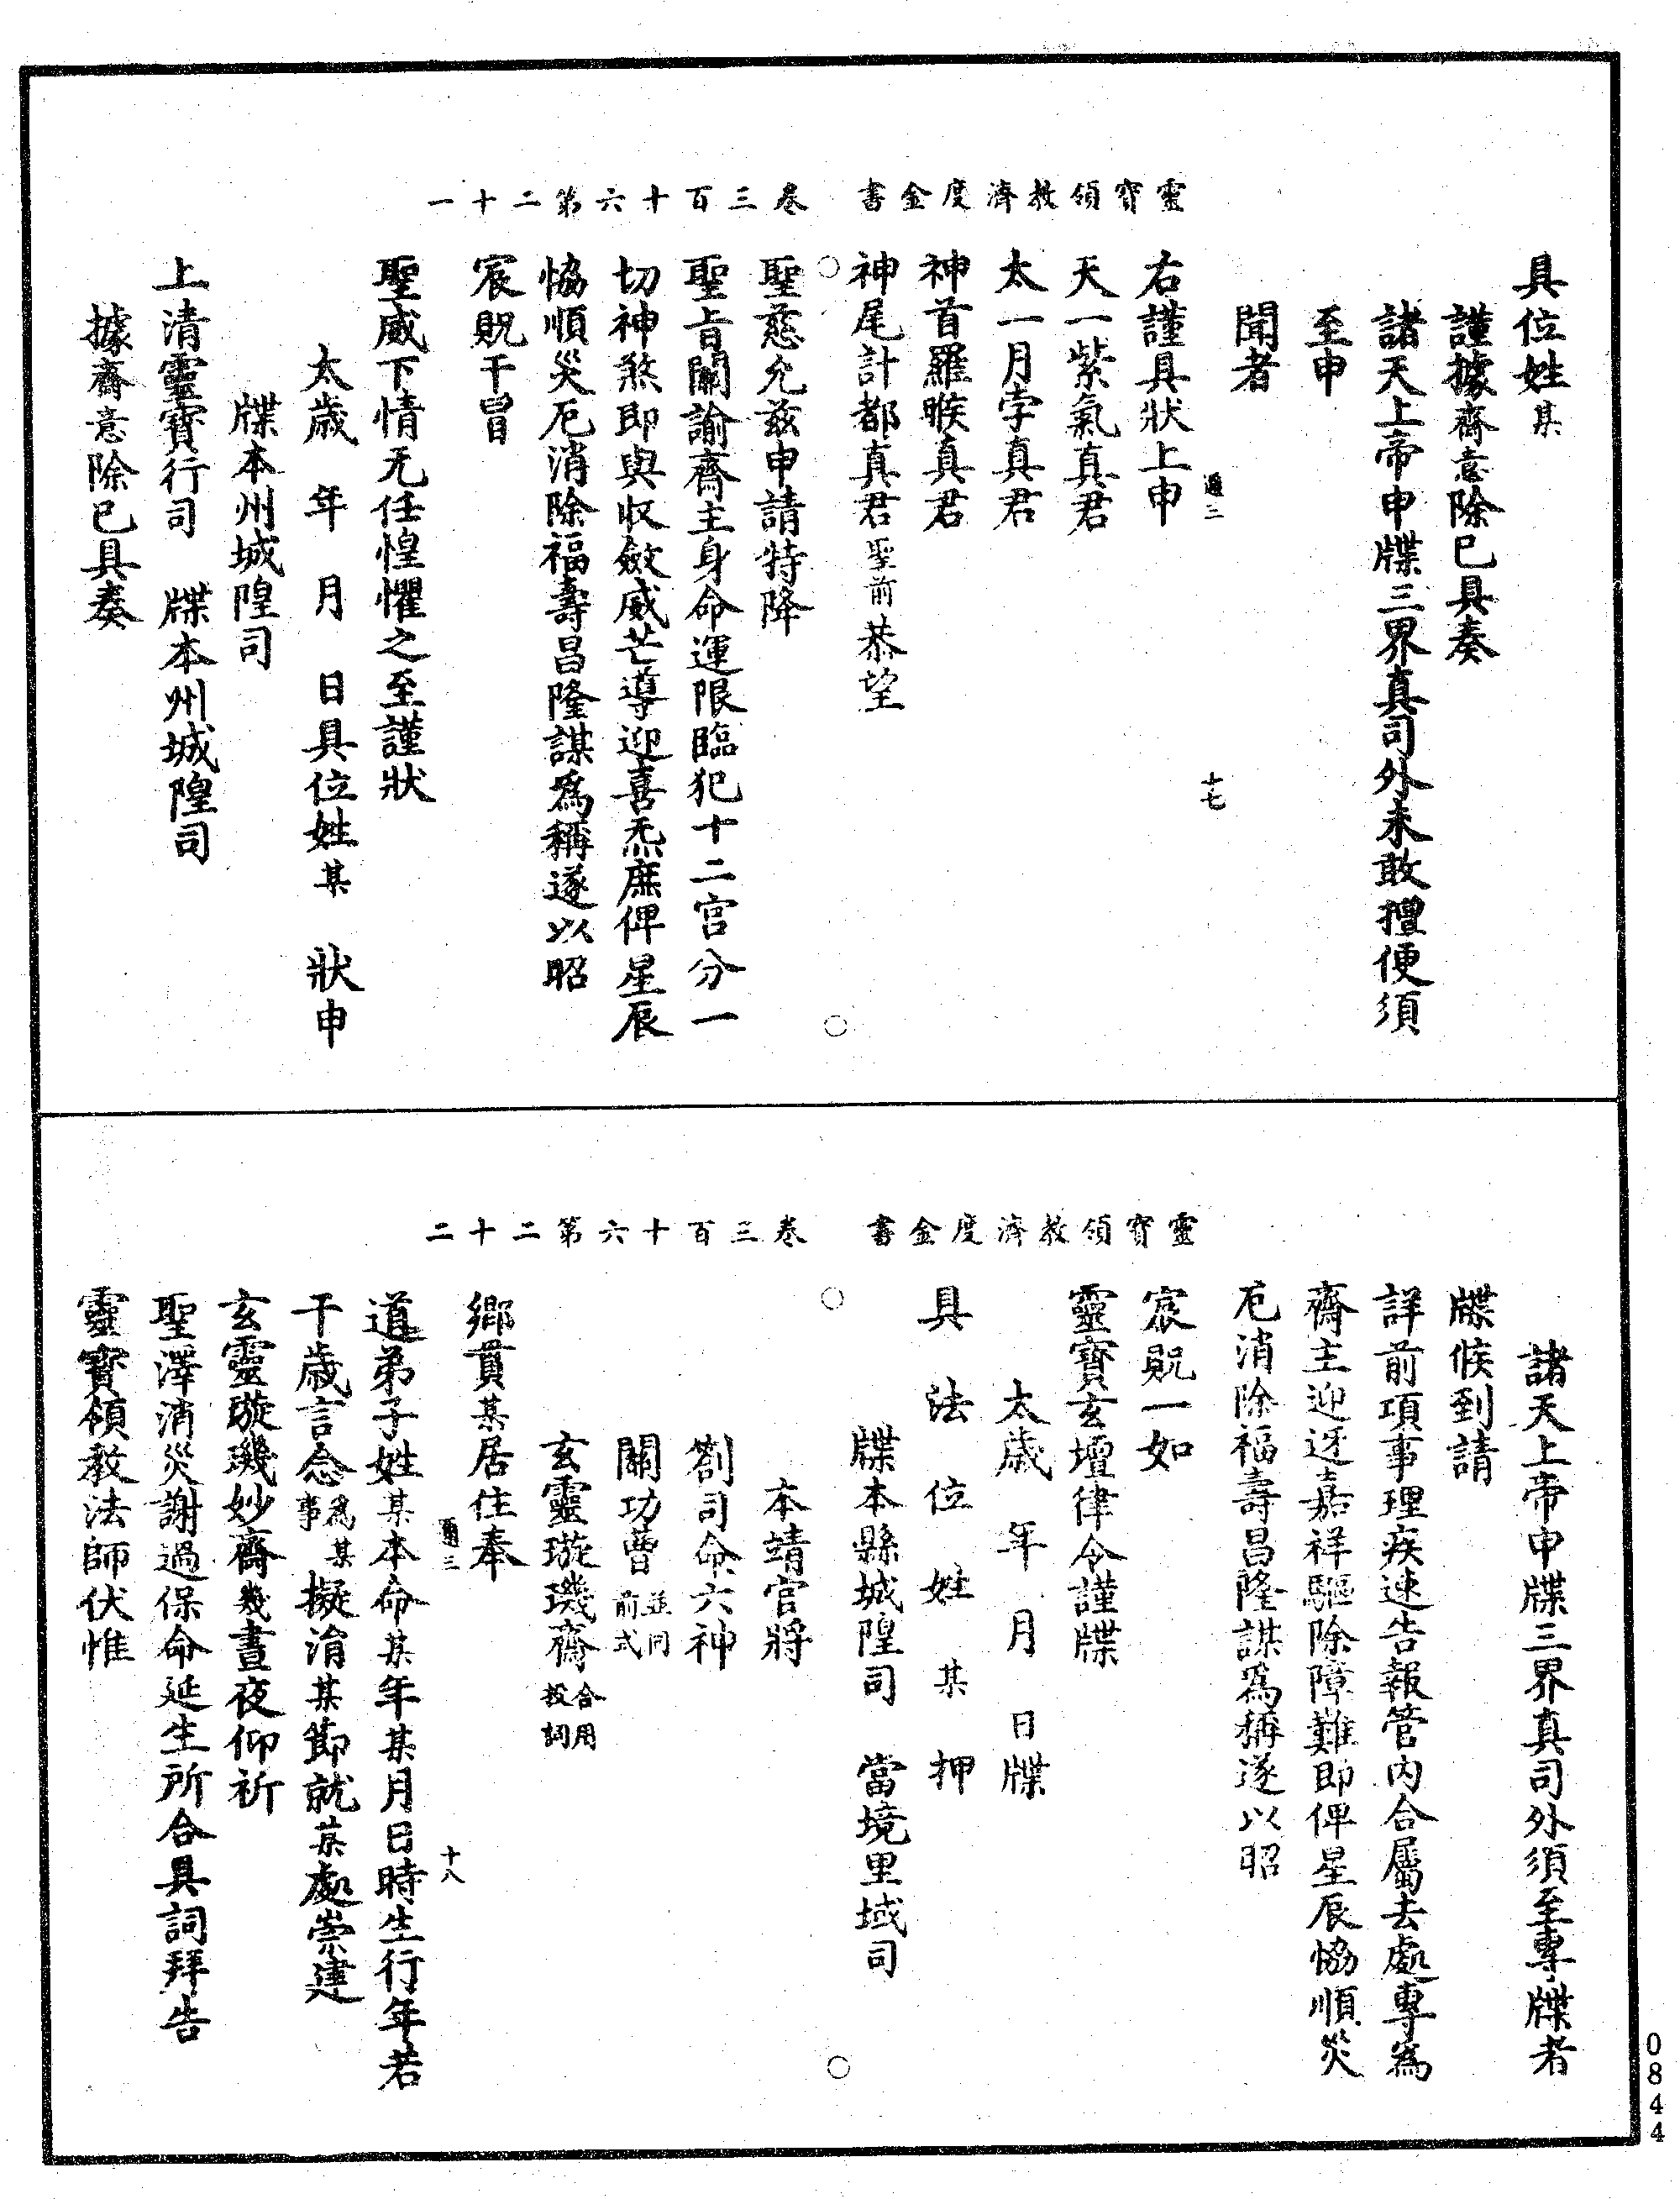 靈寶領教濟度金書 卷三百十六第二十一
具位姓某
謹據齋意除已具奏
諸天上帝申牒三界真司外未敢擅便須
至申
聞者
通三 十七
右謹具狀上申
天一紫氣真君
太一月孛真君
神首羅睺真君
神尾計都真君聖前恭望
聖慈允茲申請特降
聖旨關諭齋主身命運限臨犯十二宮分一
切神煞即與收斂威芒導迎喜炁庶俾星辰
恊順災厄消除福壽昌隆謀為稱遂以昭
宸貺干冒
聖威下情无任惶懼之至謹狀
太歲 年 月 日具位姓某 狀申
牒本州城隍司
上清靈寶行司 牒本州城隍司
據齋意除已具奏
靈寶領教濟度金書 卷三百十六第二十二
諸天上帝申牒三界真司外須至專牒者
牒候到請
詳前項事理疾速告報管內合屬去處專為
齋主迎迓嘉祥驅除障難即俾星辰恊順災
厄消除福壽昌隆謀為稱遂以昭
宸貺一如
靈寶玄壇律令謹牒
太歲 年 月 日牒
具 法 位 姓 某 押
牒本縣城隍司 當境里域司
本靖官將
劄司命六神
關功曹並同前式
玄靈璇璣齋合用投詞
鄉貫某居住奉
通三 十八
道弟子姓某本命某年某月日時生行年若
干歲言念為某事擬消某節就某處崇建
玄靈璇璣妙齋幾晝夜仰祈
聖澤消災謝過保命延生所合具詞拜告
靈寶領教法師伏惟
0844